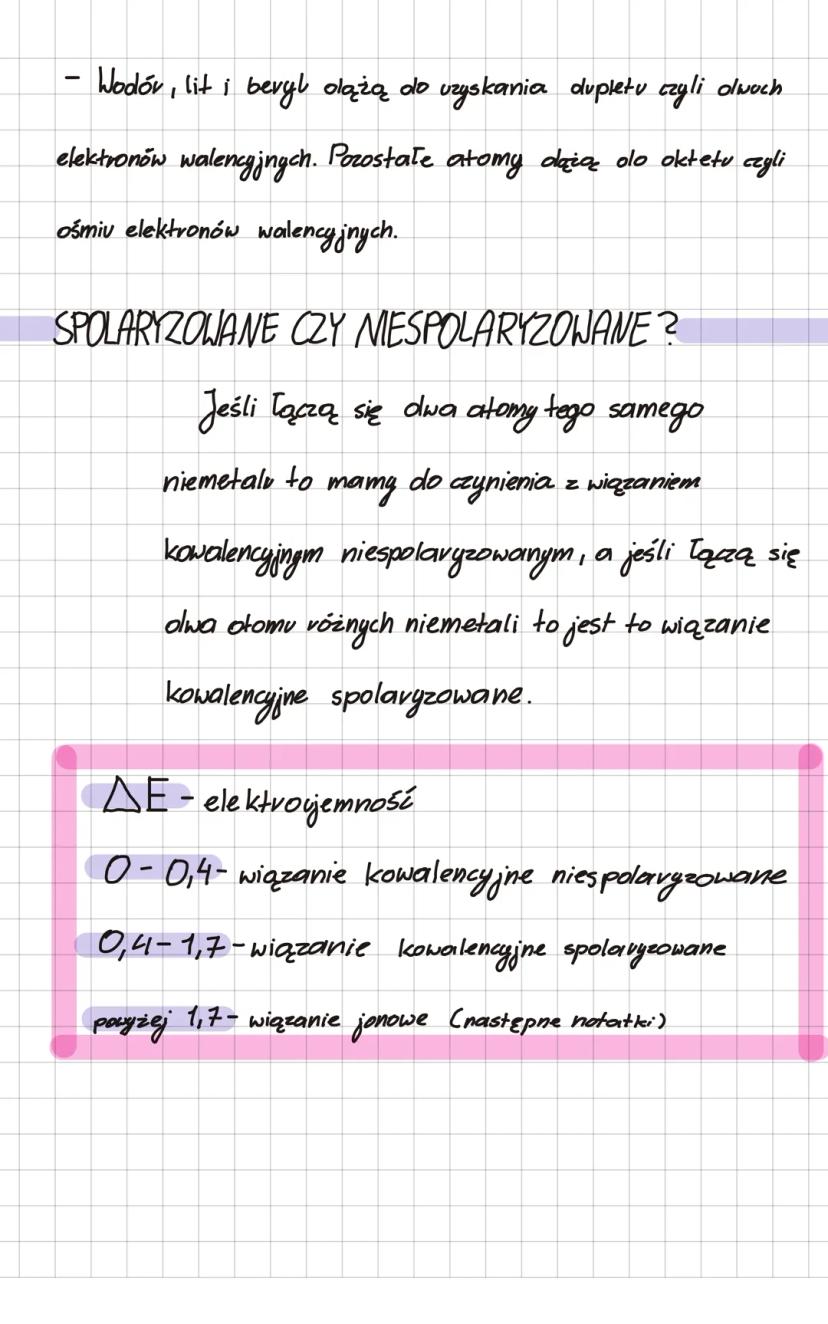 - Wodór, lit i beryl dążą do uzyskania dupletu czyli dwóch
elektronów walencyjnych. Pozostałe atomy dążą do oktetu czyli
ośmiu elektronów walencyjnych.
SPOLARYZOWANE CZY NIESPOLARYZOWANE?
Jeśli łączą się dwa atomy tego samego
niemetalu to mamy do czynienia z wiązaniem
kowalencyjnym niespolaryzowanym, a jeśli łączą się
dwa atomu różnych niemetali to jest to wiązanie
kowalencyjne spolaryzowane.
ΔE - elektroujemność
0 - 0,4 - wiązanie kowalencyjne niespolaryzowane
0,4 - 1,7 - wiązanie kowalencyjne spolaryzowane
powyżej 1,7 - wiązanie jonowe (następne notatki)